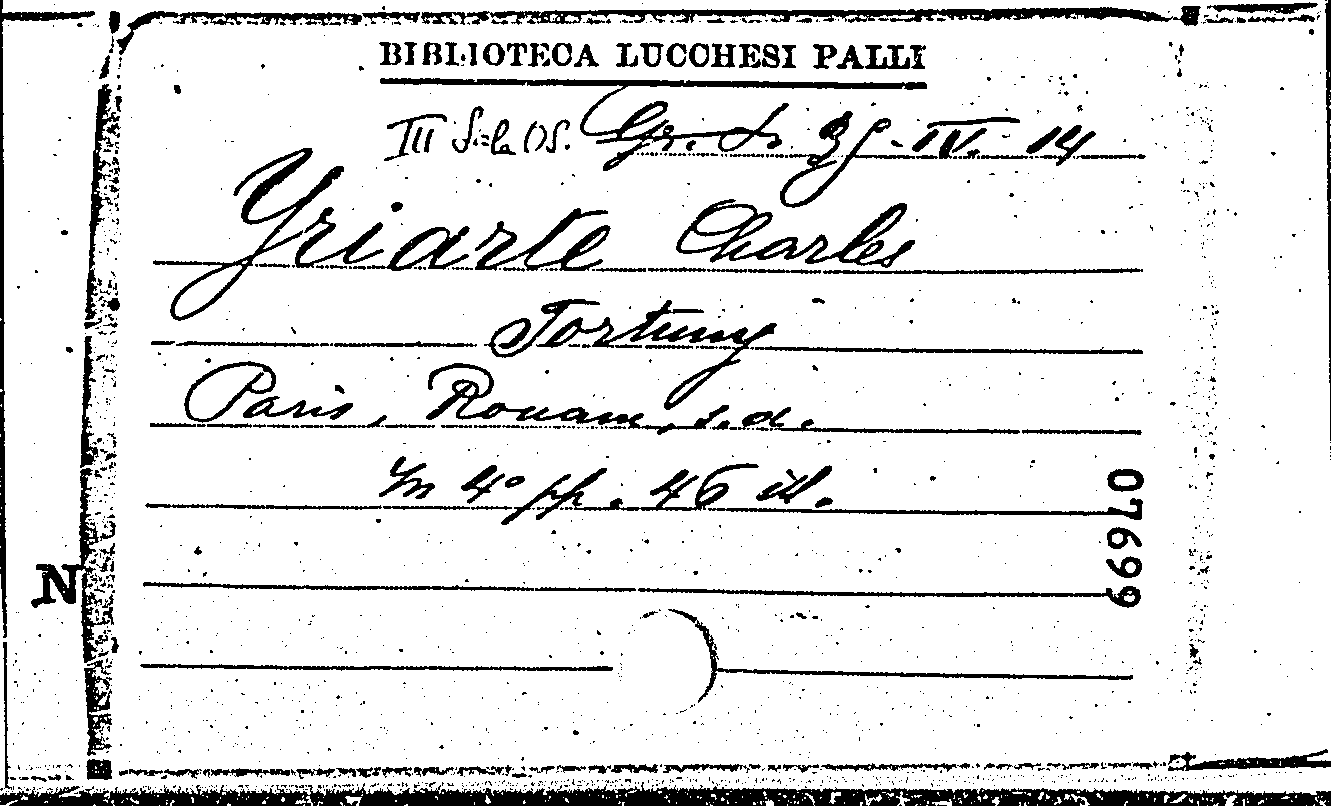 BIBLIOTECA LUCCHESI PALLI
III Sala OS. Gr. S. 39-IV. 14
Yriarte Charles
Fortuny
Paris, Rouam, s.d.
In 4º pp. 46 ill.
07699
N